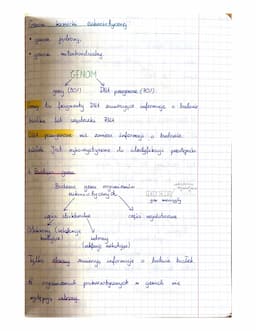 Genom komórki eukariotycznej
• genom jądrowy,
• genom mitochondrialny.
GENOM
geny (30%) DNA pozagenowe (70%)
Geny to fragmenty DNA zawierające informację o budowie
białka lub cząsteczki RNA
DNA pozagenowe nie zawiera informacji o budowie
białek. Jest wykorzystywane do identyfikacji
Budowa genu
Budowa genu organizmów
eukariotycznych
część strukturalna część regulatorowa
Eksony (
introny
Tylko eksony zawierają informację o budowie białek
U organizmów prokariotycznych w genach nie
występują introny.